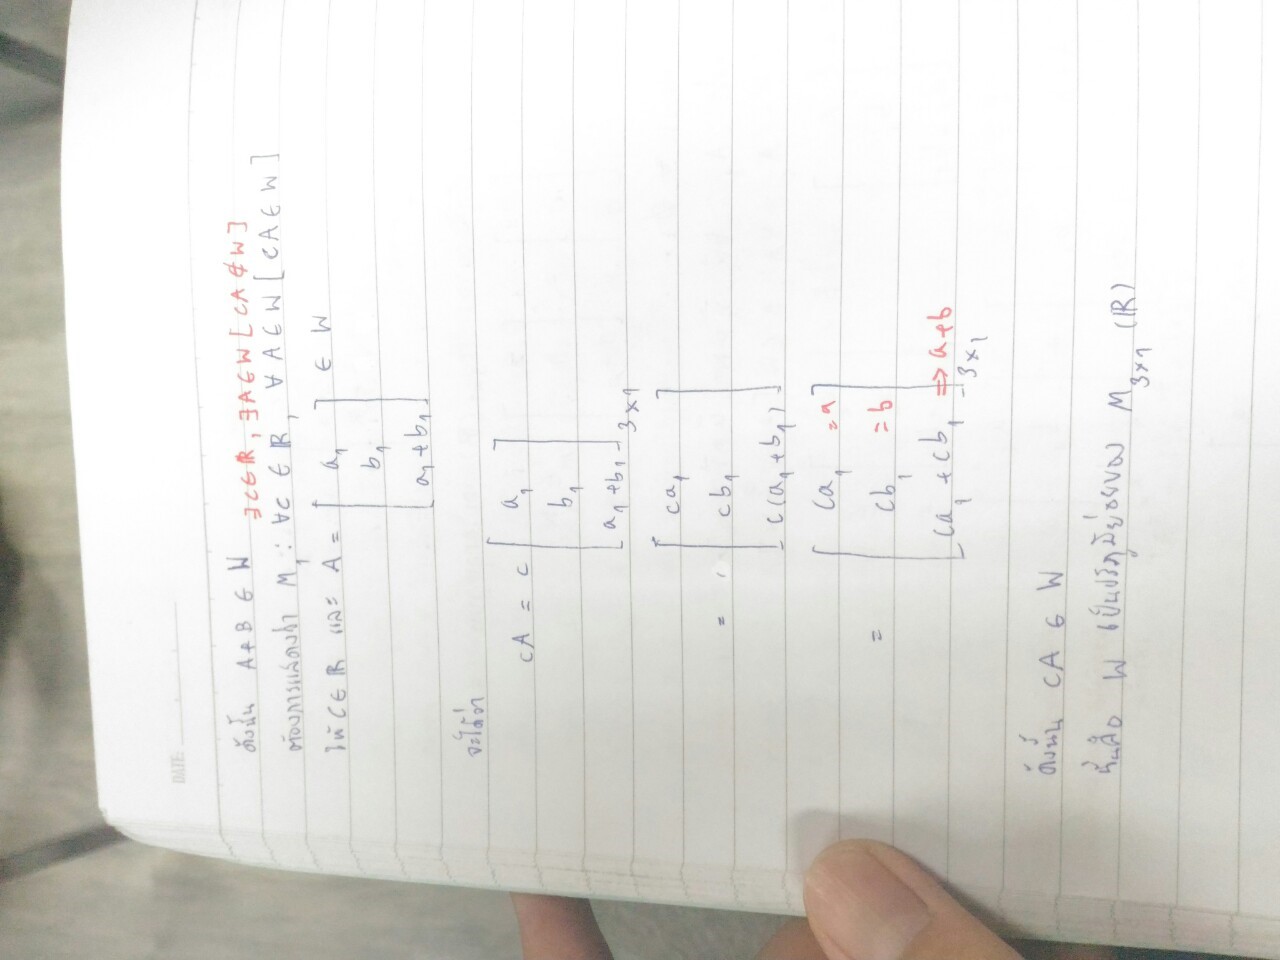 DATE:
ดังนั้น A+B ∈ W ∃c∈ℝ, ∃A∈W [cA∉W]
ต้องการแสดงว่า M₁: ∀c ∈ ℝ, ∀A∈W [cA∈W]
ให้ c∈ℝ และ A = [ a₁ ] ∈ W
b₁
a₁+b₁
จะได้ว่า
cA = c [ a₁ ]
b₁
a₁+b₁ ]3×1
[ ca₁ ]
= cb₁
c(a₁+b₁)
[ ca₁ =a ]
= cb₁ =b
ca₁+cb₁ ]3×1 ⇒ a+b
ดังนั้น cA ∈ W
นั่นคือ W เป็นปริภูมิย่อยของ M3×1 (ℝ)